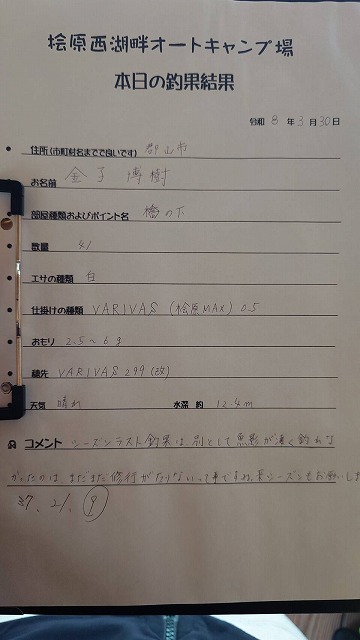 桧原西湖畔オートキャンプ場
本日の釣果結果
令和 8 年 3 月 30 日
住所(市町村名までで良いです) 郡山市
お名前 金子 博樹
部屋種類およびポイント名 橋の下
数量 41
エサの種類 白
仕掛けの種類 VARIVAS (桧原MAX) 0.5
おもり 2.5〜6g
穂先 VARIVAS 299 (改)
天気 晴れ 水深 約 12.4m
コメント シーズンラスト釣果は別として魚影が濃く釣れな
かったのは、まだまだ修行が足りないって事ですね。来シーズンもお願いしま
37、21、9